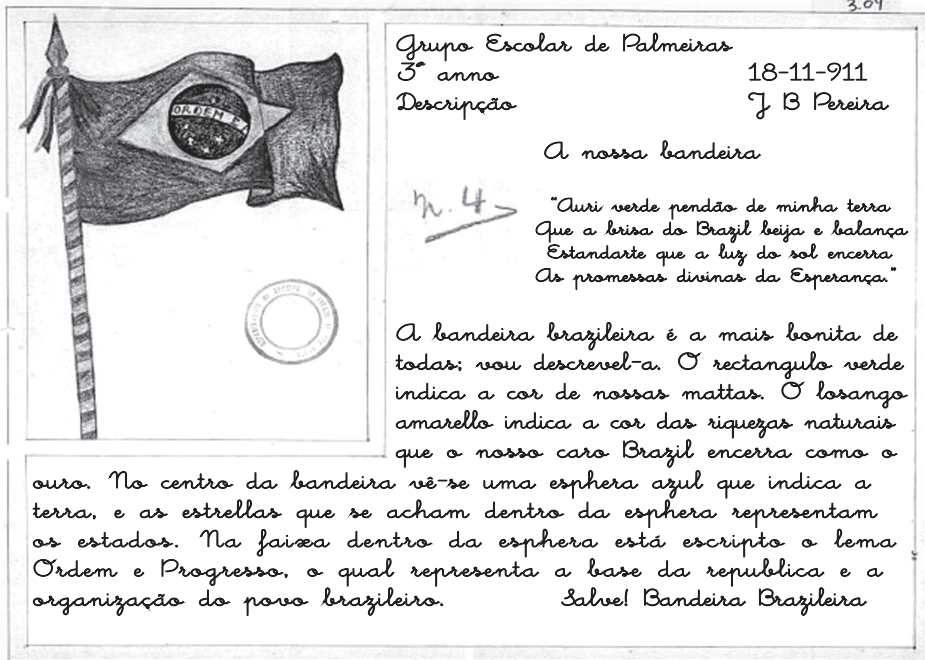 3.09
Grupo Escolar de Palmeiras
3º anno
18-11-911
Descripção
J B Pereira
A nossa bandeira
n. 4
"Auri verde pendão de minha terra
Que a brisa do Brazil beija e balança
Estandarte que a luz do sol encerra
As promessas divinas da Esperança."
ORDEM E
A bandeira brazileira é a mais bonita de
todas; vou descrevel-a. O rectangulo verde
indica a cor de nossas mattas. O losango
amarello indica a cor das riquezas naturais
que o nosso caro Brazil encerra como o
ouro. No centro da bandeira vê-se uma esphera azul que indica a
terra, e as estrellas que se acham dentro da esphera representam
os estados. Na faixa dentro da esphera está escripto o lema
Ordem e Progresso, o qual representa a base da republica e a
organização do povo brazileiro.
Salve! Bandeira Brazileira